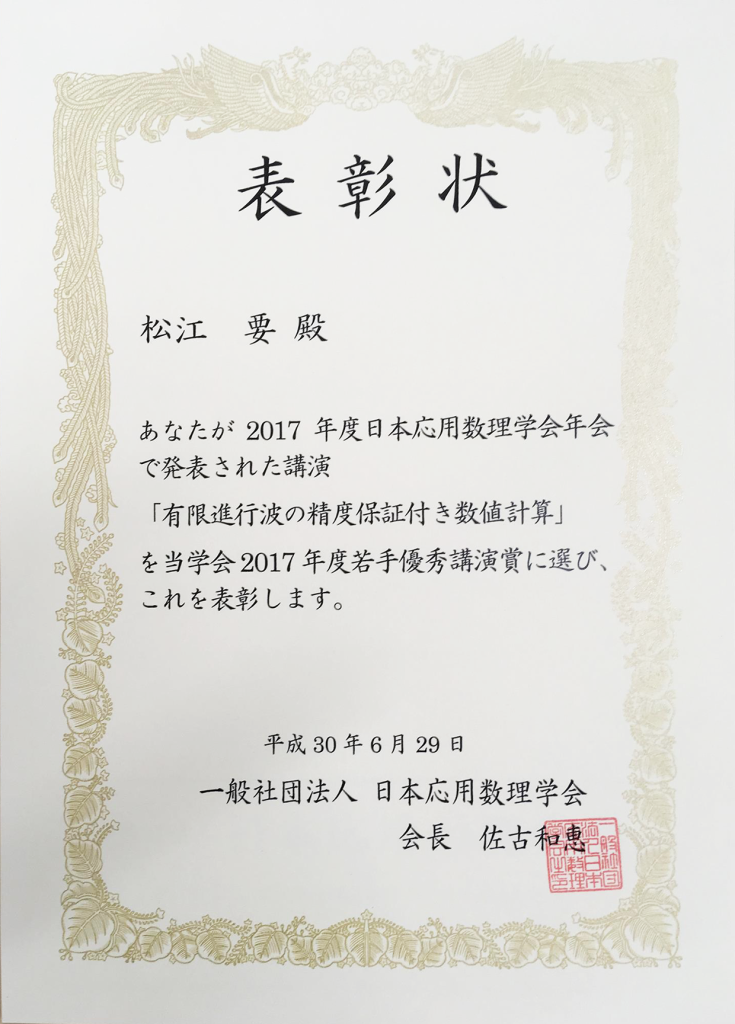 表彰状
松江　要 殿
あなたが 2017 年度日本応用数理学会年会
で発表された講演
「有限進行波の精度保証付き数値計算」
を当学会 2017 年度若手優秀講演賞に選び、
これを表彰します。
平成 30 年 6 月 29 日
一般社団法人 日本応用数理学会
会長　佐古和恵